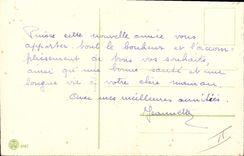 Puisse cette nouvelle année vous
apporter tout le bonheur et l'accom-
plissement de tous vos souhaits,
ainsi qu'une bonne santé et une
longue vie à votre chère maman
Avec mes meilleures amitiés.
Jeannette